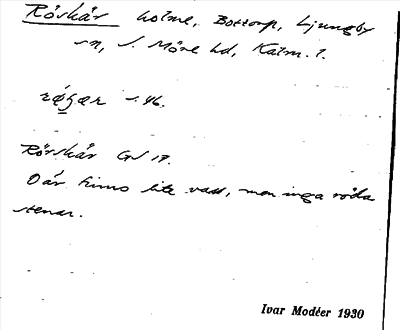 Rörskär holme, Bottorp, Ljungby
sn, S. Möre hd, Kalm. l.
s. 46.
Rörskär GS 17.
Där finns lite vass, men inga röda
stenar.
Ivar Modéer 1930